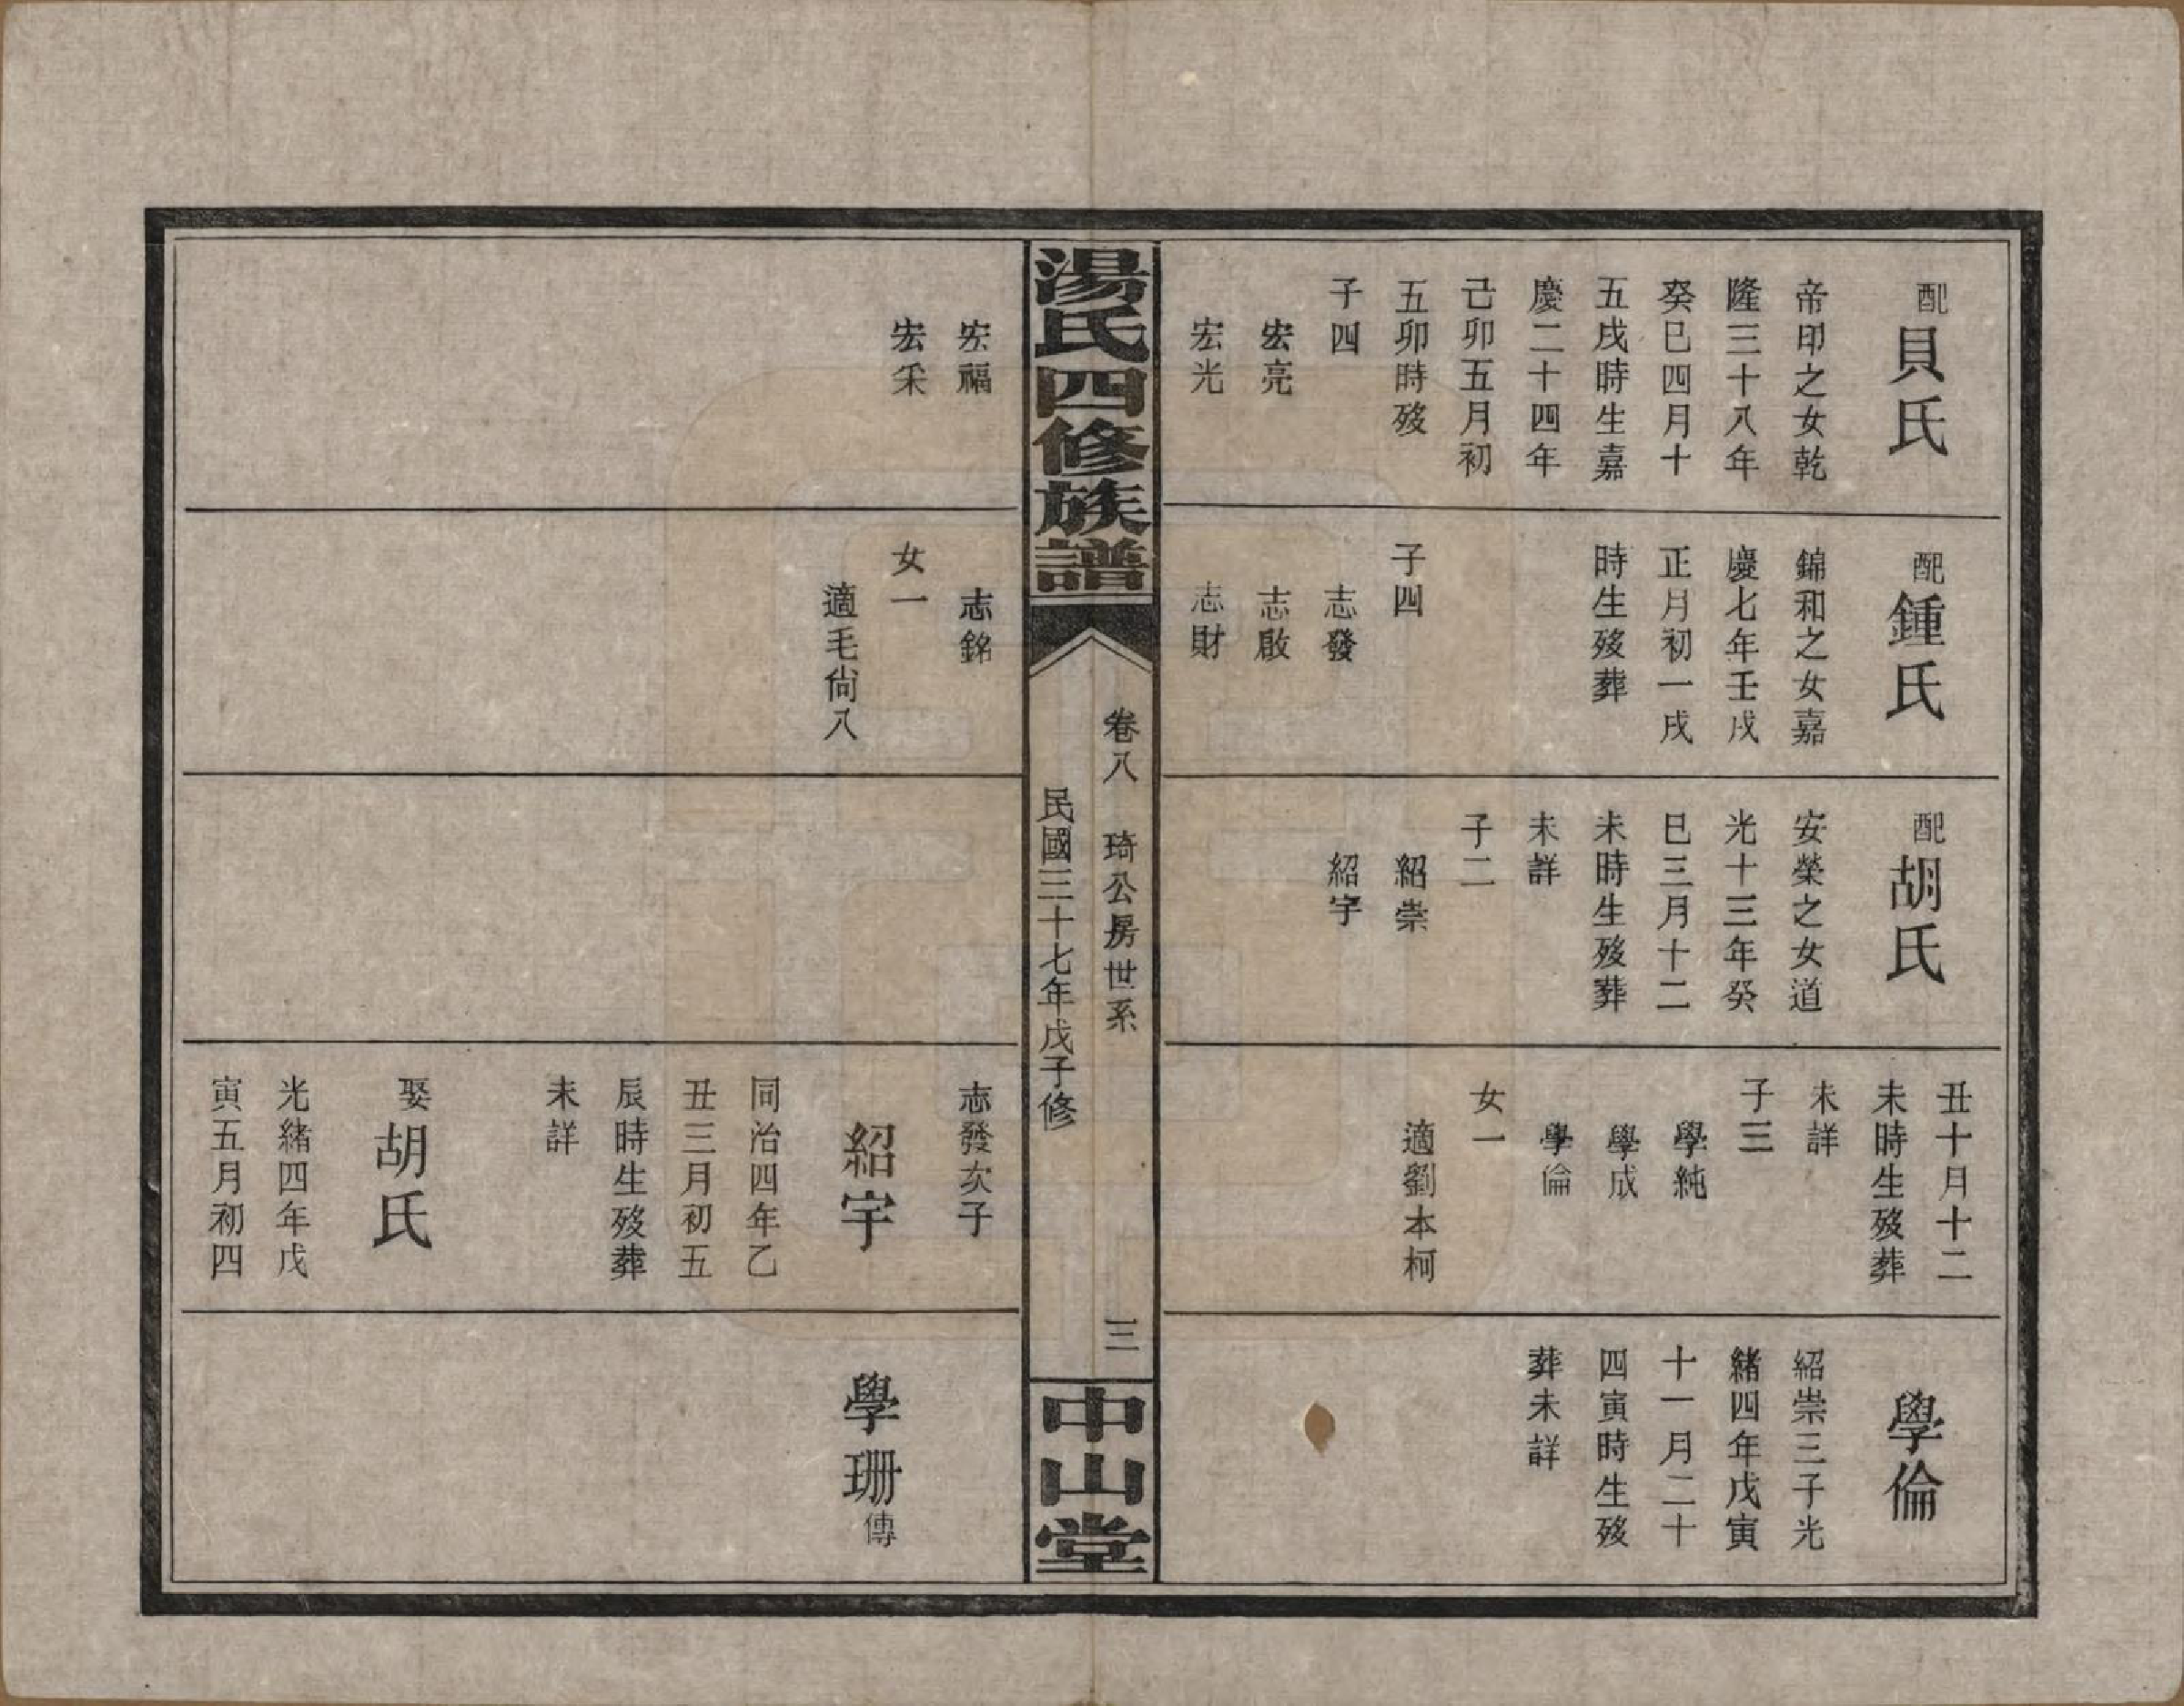 配貝氏
帝印之女乾
隆三十八年
癸巳四月十
五戌時生嘉
慶二十四年
己卯五月初
五卯時歿
子四
宏亮
宏光
配鍾氏
錦和之女嘉
慶七年壬戌
正月初一戌
時生歿葬
子四
志發
志啟
志財
配胡氏
安榮之女道
光十三年癸
巳三月十二
未時生歿葬
未詳
子二
紹崇
紹宇
丑十月十二
未時生歿葬
未詳
子三
學純
學成
學倫
女一
適劉本柯
學倫
紹崇三子光
緒四年戊寅
十一月二十
四寅時生歿
葬未詳
湯氏四修族譜
卷八 琦公房世系 三
民國三十七年戊子修
中山堂
宏福
宏采
志銘
女一
適毛尙八
志發次子
紹宇
同治四年乙
丑三月初五
辰時生歿葬
未詳
娶胡氏
光緒四年戊
寅五月初四
學珊傳